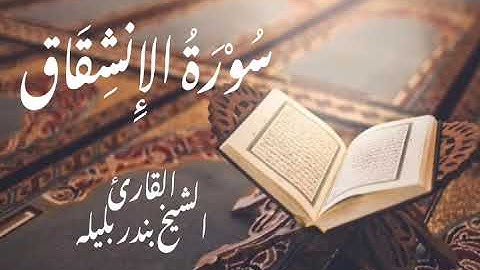 سُوْرَةُ الإِنشِقَاق
القارئ
الشيخ بندر بليله